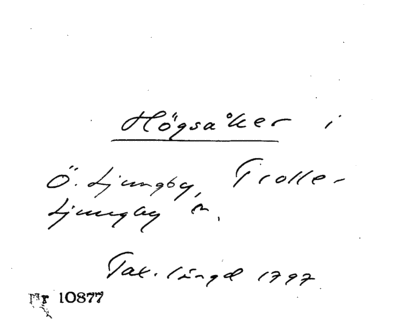 Högsåker i
Ö. Ljungby, Trolle-
Ljungby sn.
Tax. längd 1797
Nr 10877